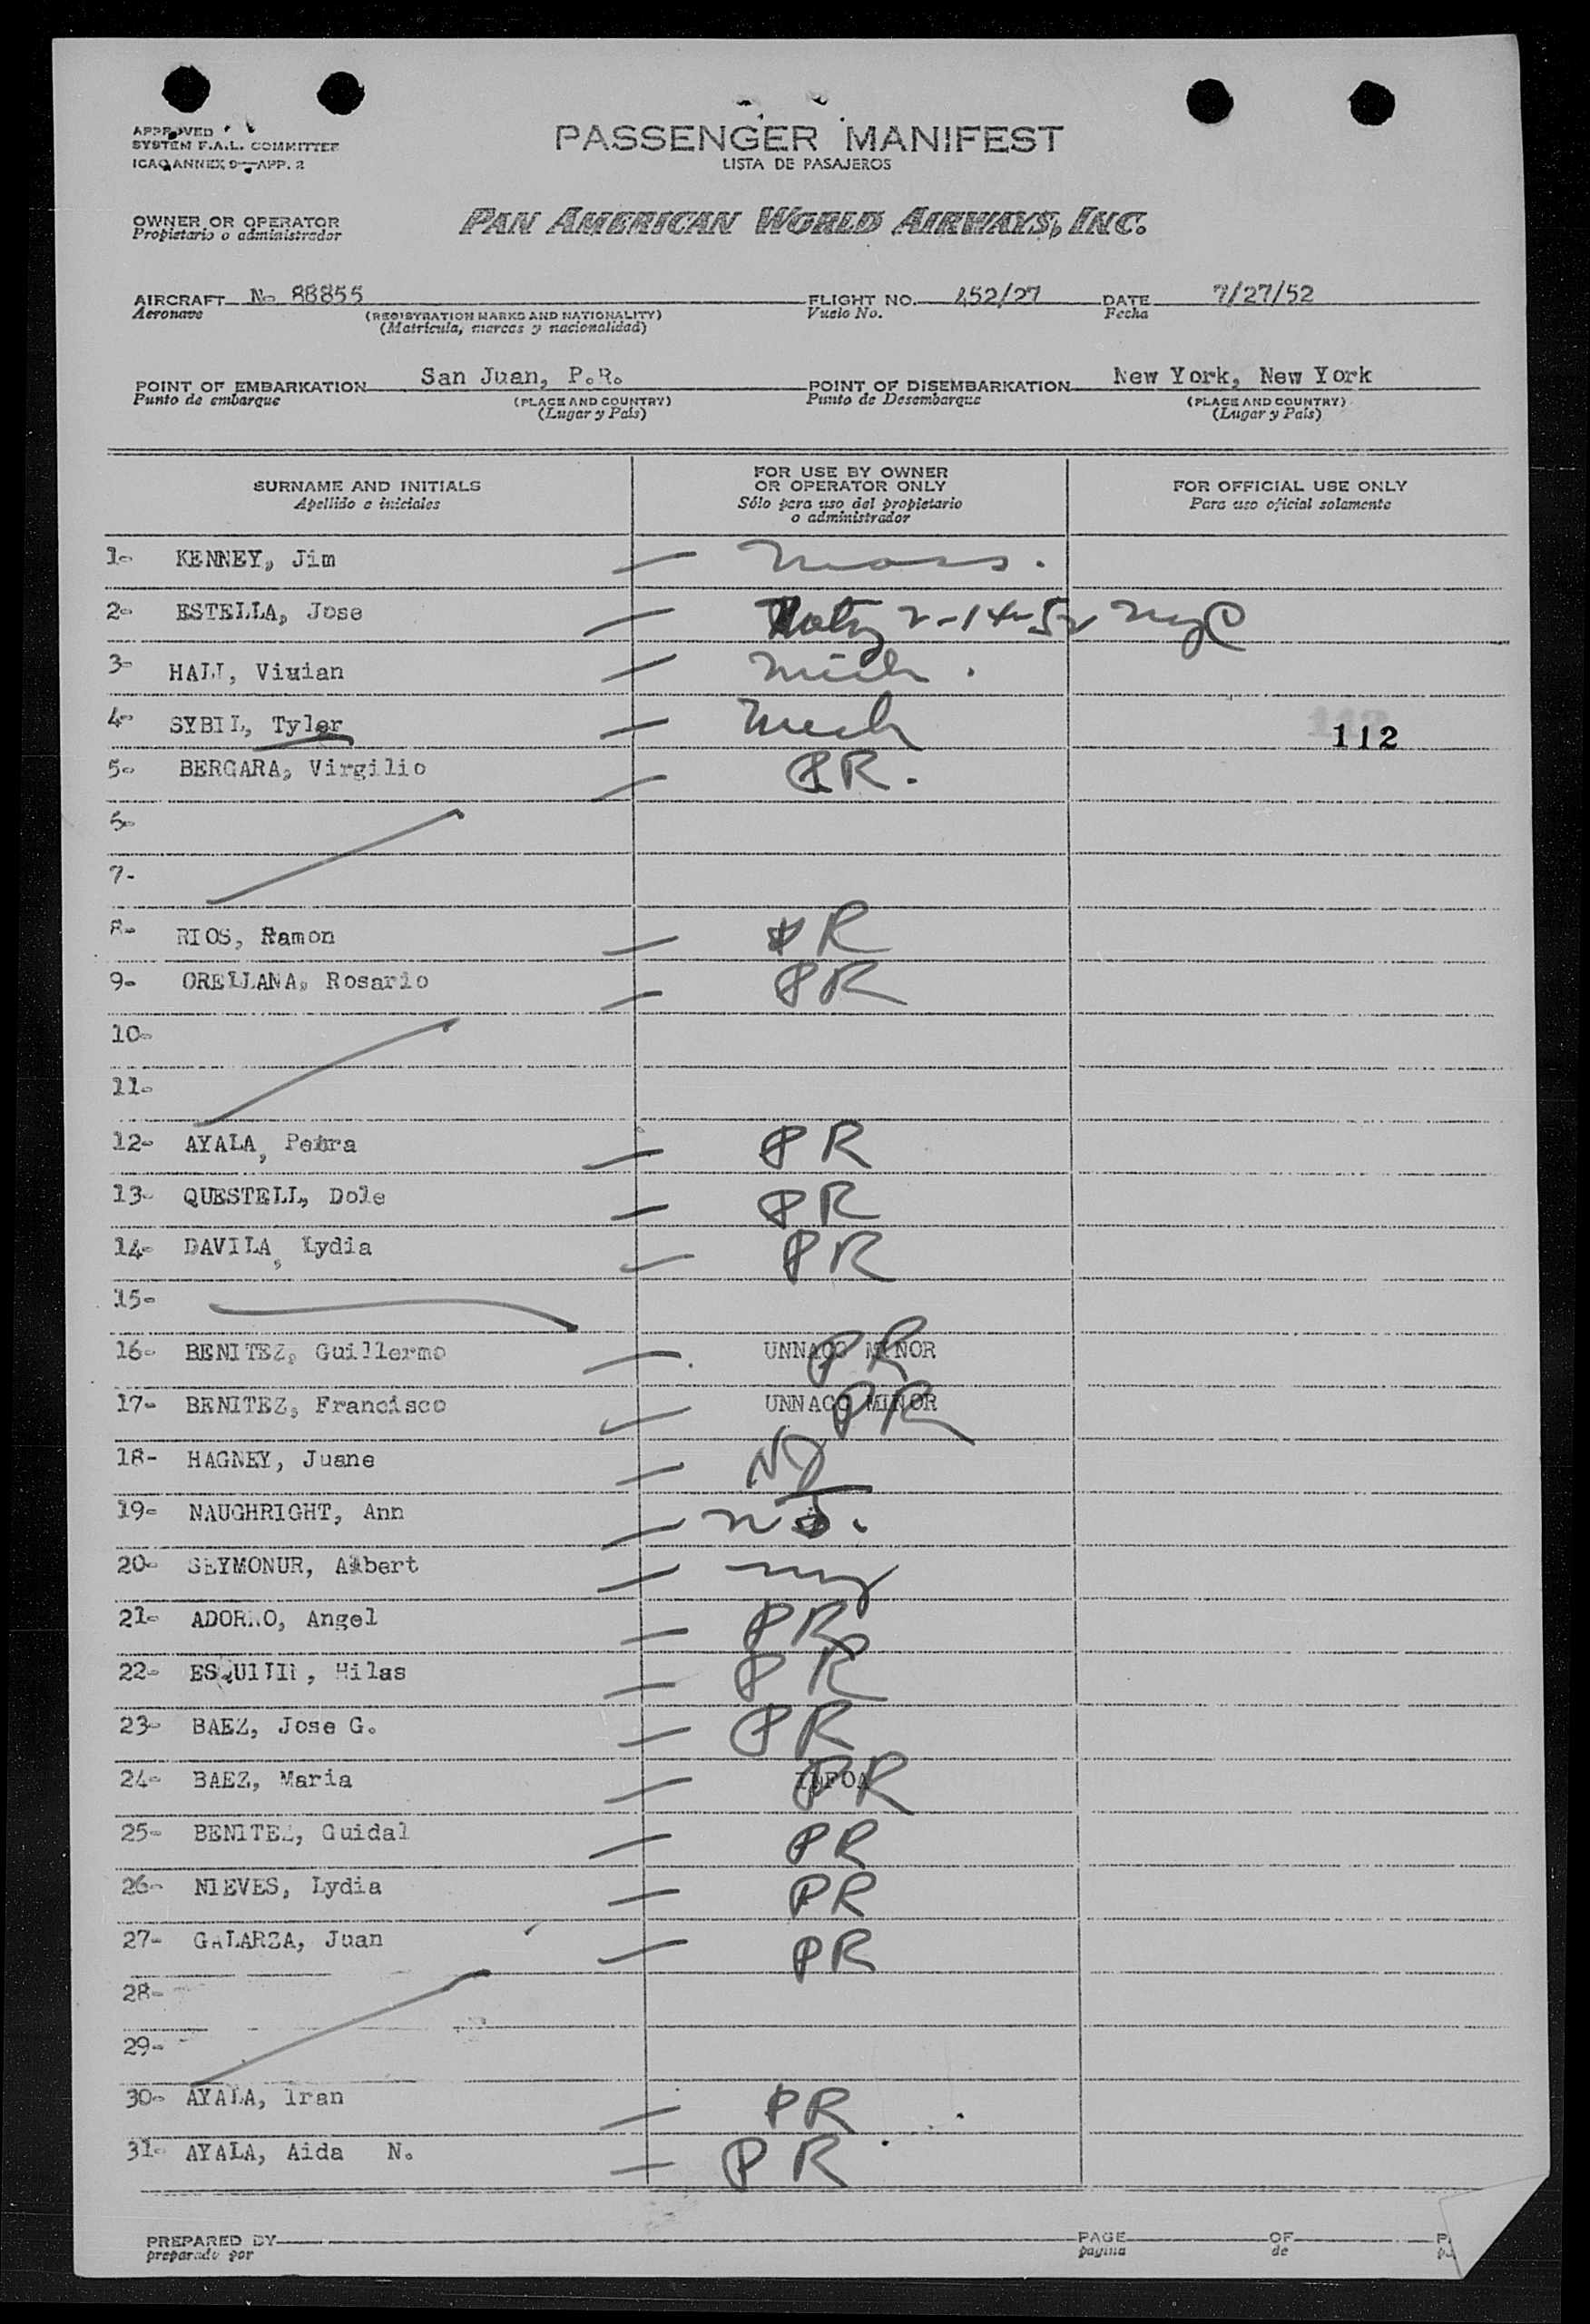 APPROVED
SYSTEM F.A.L. COMMITTEE
ICAO ANNEX 9—APP. 2
PASSENGER MANIFEST
LISTA DE PASAJEROS
OWNER OR OPERATOR
Propietario o administrador
PAN AMERICAN WORLD AIRWAYS, INC.
AIRCRAFT No 88855 FLIGHT NO. 452/27 DATE 7/27/52
Aeronave (REGISTRATION MARKS AND NATIONALITY) Vuelo No. Fecha
(Matrícula, marcas y nacionalidad)
POINT OF EMBARKATION San Juan, P.R. POINT OF DISEMBARKATION New York, New York
Punto de embarque (PLACE AND COUNTRY) Punto de Desembarque (PLACE AND COUNTRY)
(Lugar y País) (Lugar y País)
SURNAME AND INITIALS
Apellido e iniciales
FOR USE BY OWNER
OR OPERATOR ONLY
Sólo para uso del propietario
o administrador
FOR OFFICIAL USE ONLY
Para uso oficial solamente
1- KENNEY, Jim Mass.
2- ESTELLA, Jose 2-14-52 NYC
3- HALL, Vivian Mich.
4- SYBIL, Tyler Mich 112
5- BERGARA, Virgilio PR.
6-
7-
8- RIOS, Ramon PR
9- ORELLANA, Rosario PR
10-
11-
12- AYALA, Petra PR
13- QUESTELL, Dole PR
14- DAVILA, Lydia PR
15-
16- BENITEZ, Guillermo UNNACO MINOR PR
17- BENITEZ, Francisco UNNACO MINOR PR
18- HAGNEY, Juane NJ
19- NAUGHRIGHT, Ann NJ.
20- SEYMONUR, Albert NY
21- ADORNO, Angel PR
22- Hilas PR
23- BAEZ, Jose G. PR
24- BAEZ, Maria PR
25- BENITEZ, Guidal PR
26- NIEVES, Lydia PR
27- GALARZA, Juan PR
28-
29-
30- AYALA, Iran PR
31- AYALA, Aida N. PR
PREPARED BY PAGE OF
preparado por pagina de